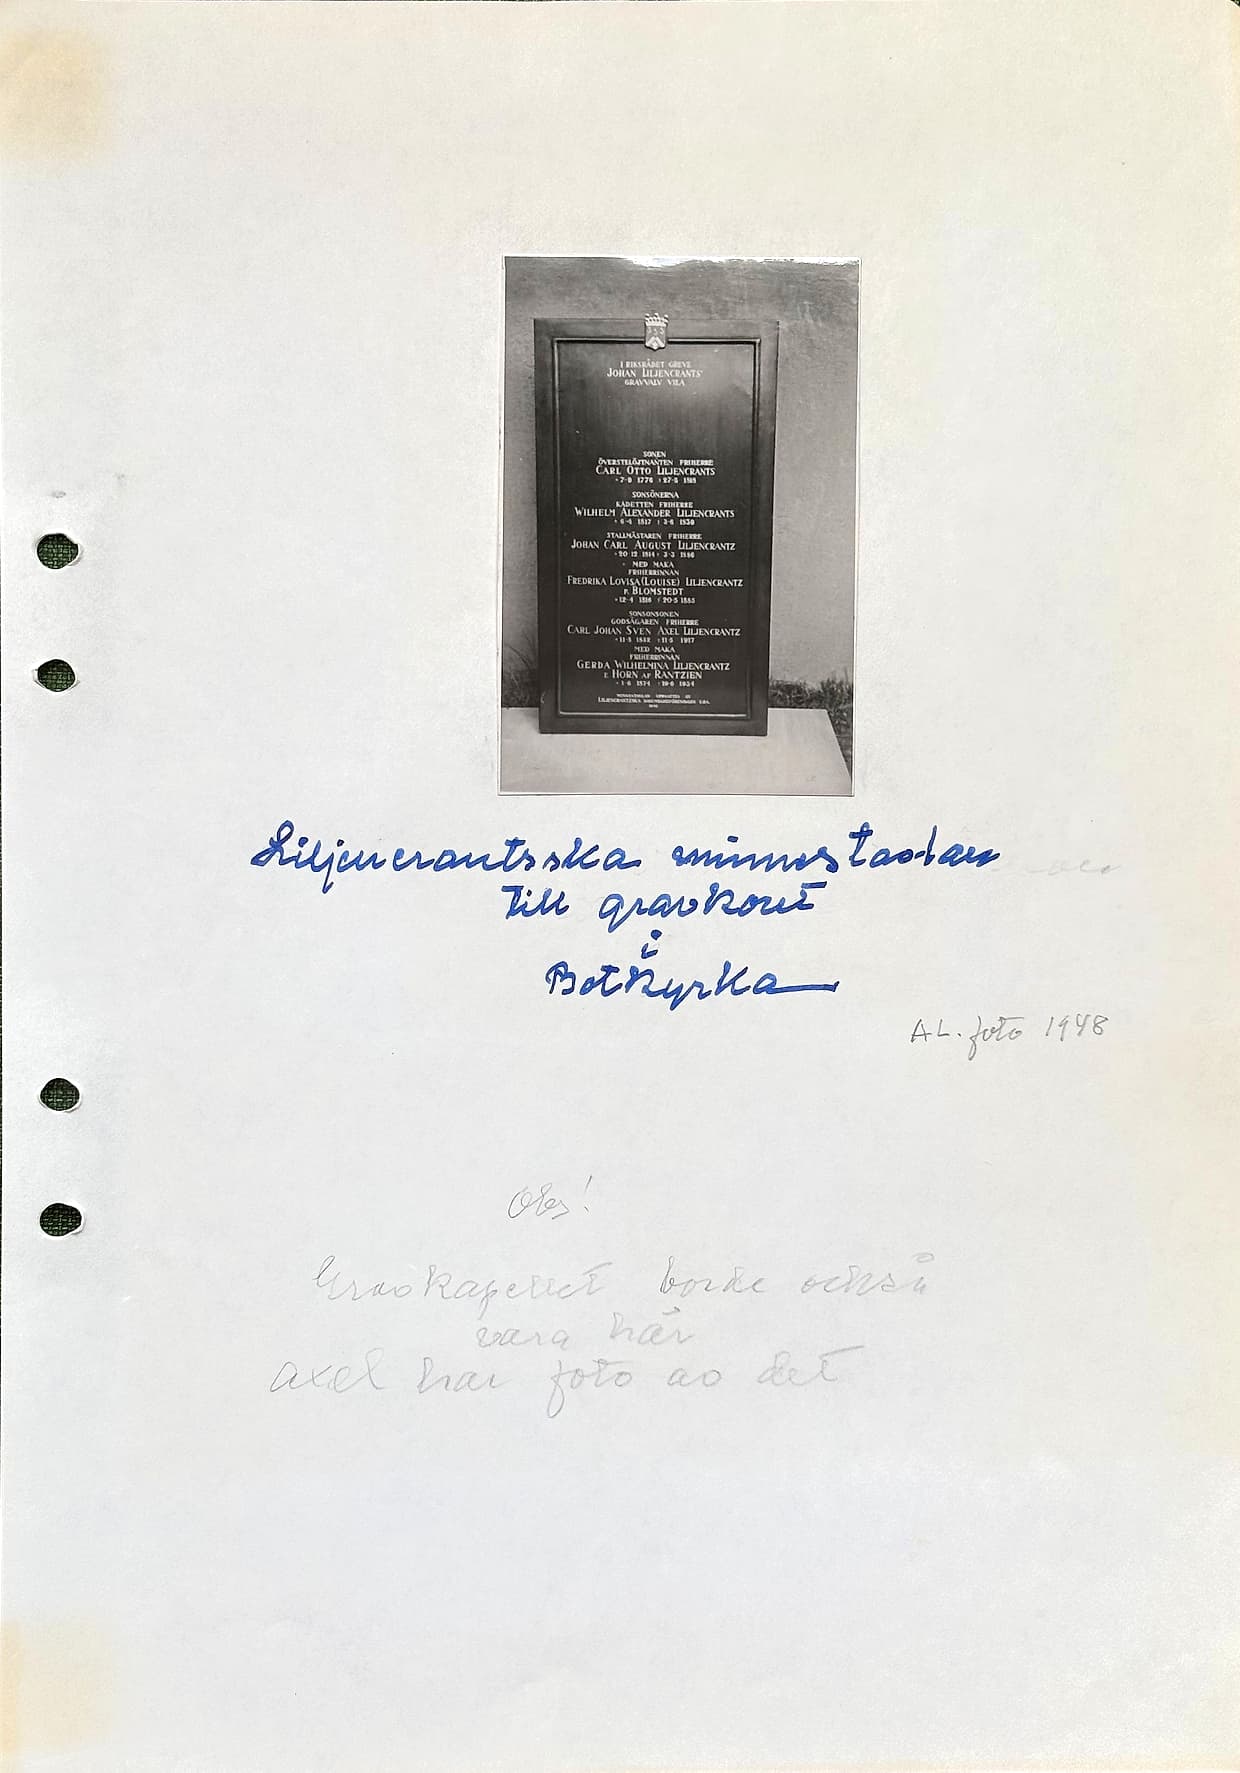 I RIKSRÅDET GREVE
JOHAN LILJENCRANTS'
GRAVVALV VILA
SONEN
ÖVERSTELÖJTNANTEN FRIHERRE
CARL OTTO LILJENCRANTS
SONSÖNERNA
KADETTEN FRIHERRE
WILHELM ALEXANDER LILJENCRANTS
STALLMÄSTAREN FRIHERRE
JOHAN CARL AUGUST LILJENCRANTZ
MED MAKA
FRIHERRINNAN
FREDRIKA LOVISA (LOUISE) LILJENCRANTZ
F. BLOMSTEDT
SONSONSONEN
GODSÄGAREN FRIHERRE
CARL JOHAN SVEN AXEL LILJENCRANTZ
MED MAKA
FRIHERRINNAN
GERDA WILHELMINA LILJENCRANTZ
F. HORN AF RANTZIEN
LILJENCRANTZSKA
Liljencrantsska minnestavlan
till gravkoret
i
Botkyrka
AL. foto 1948
Obs!
Gravkapellet borde också
vara här
Axel har foto av det